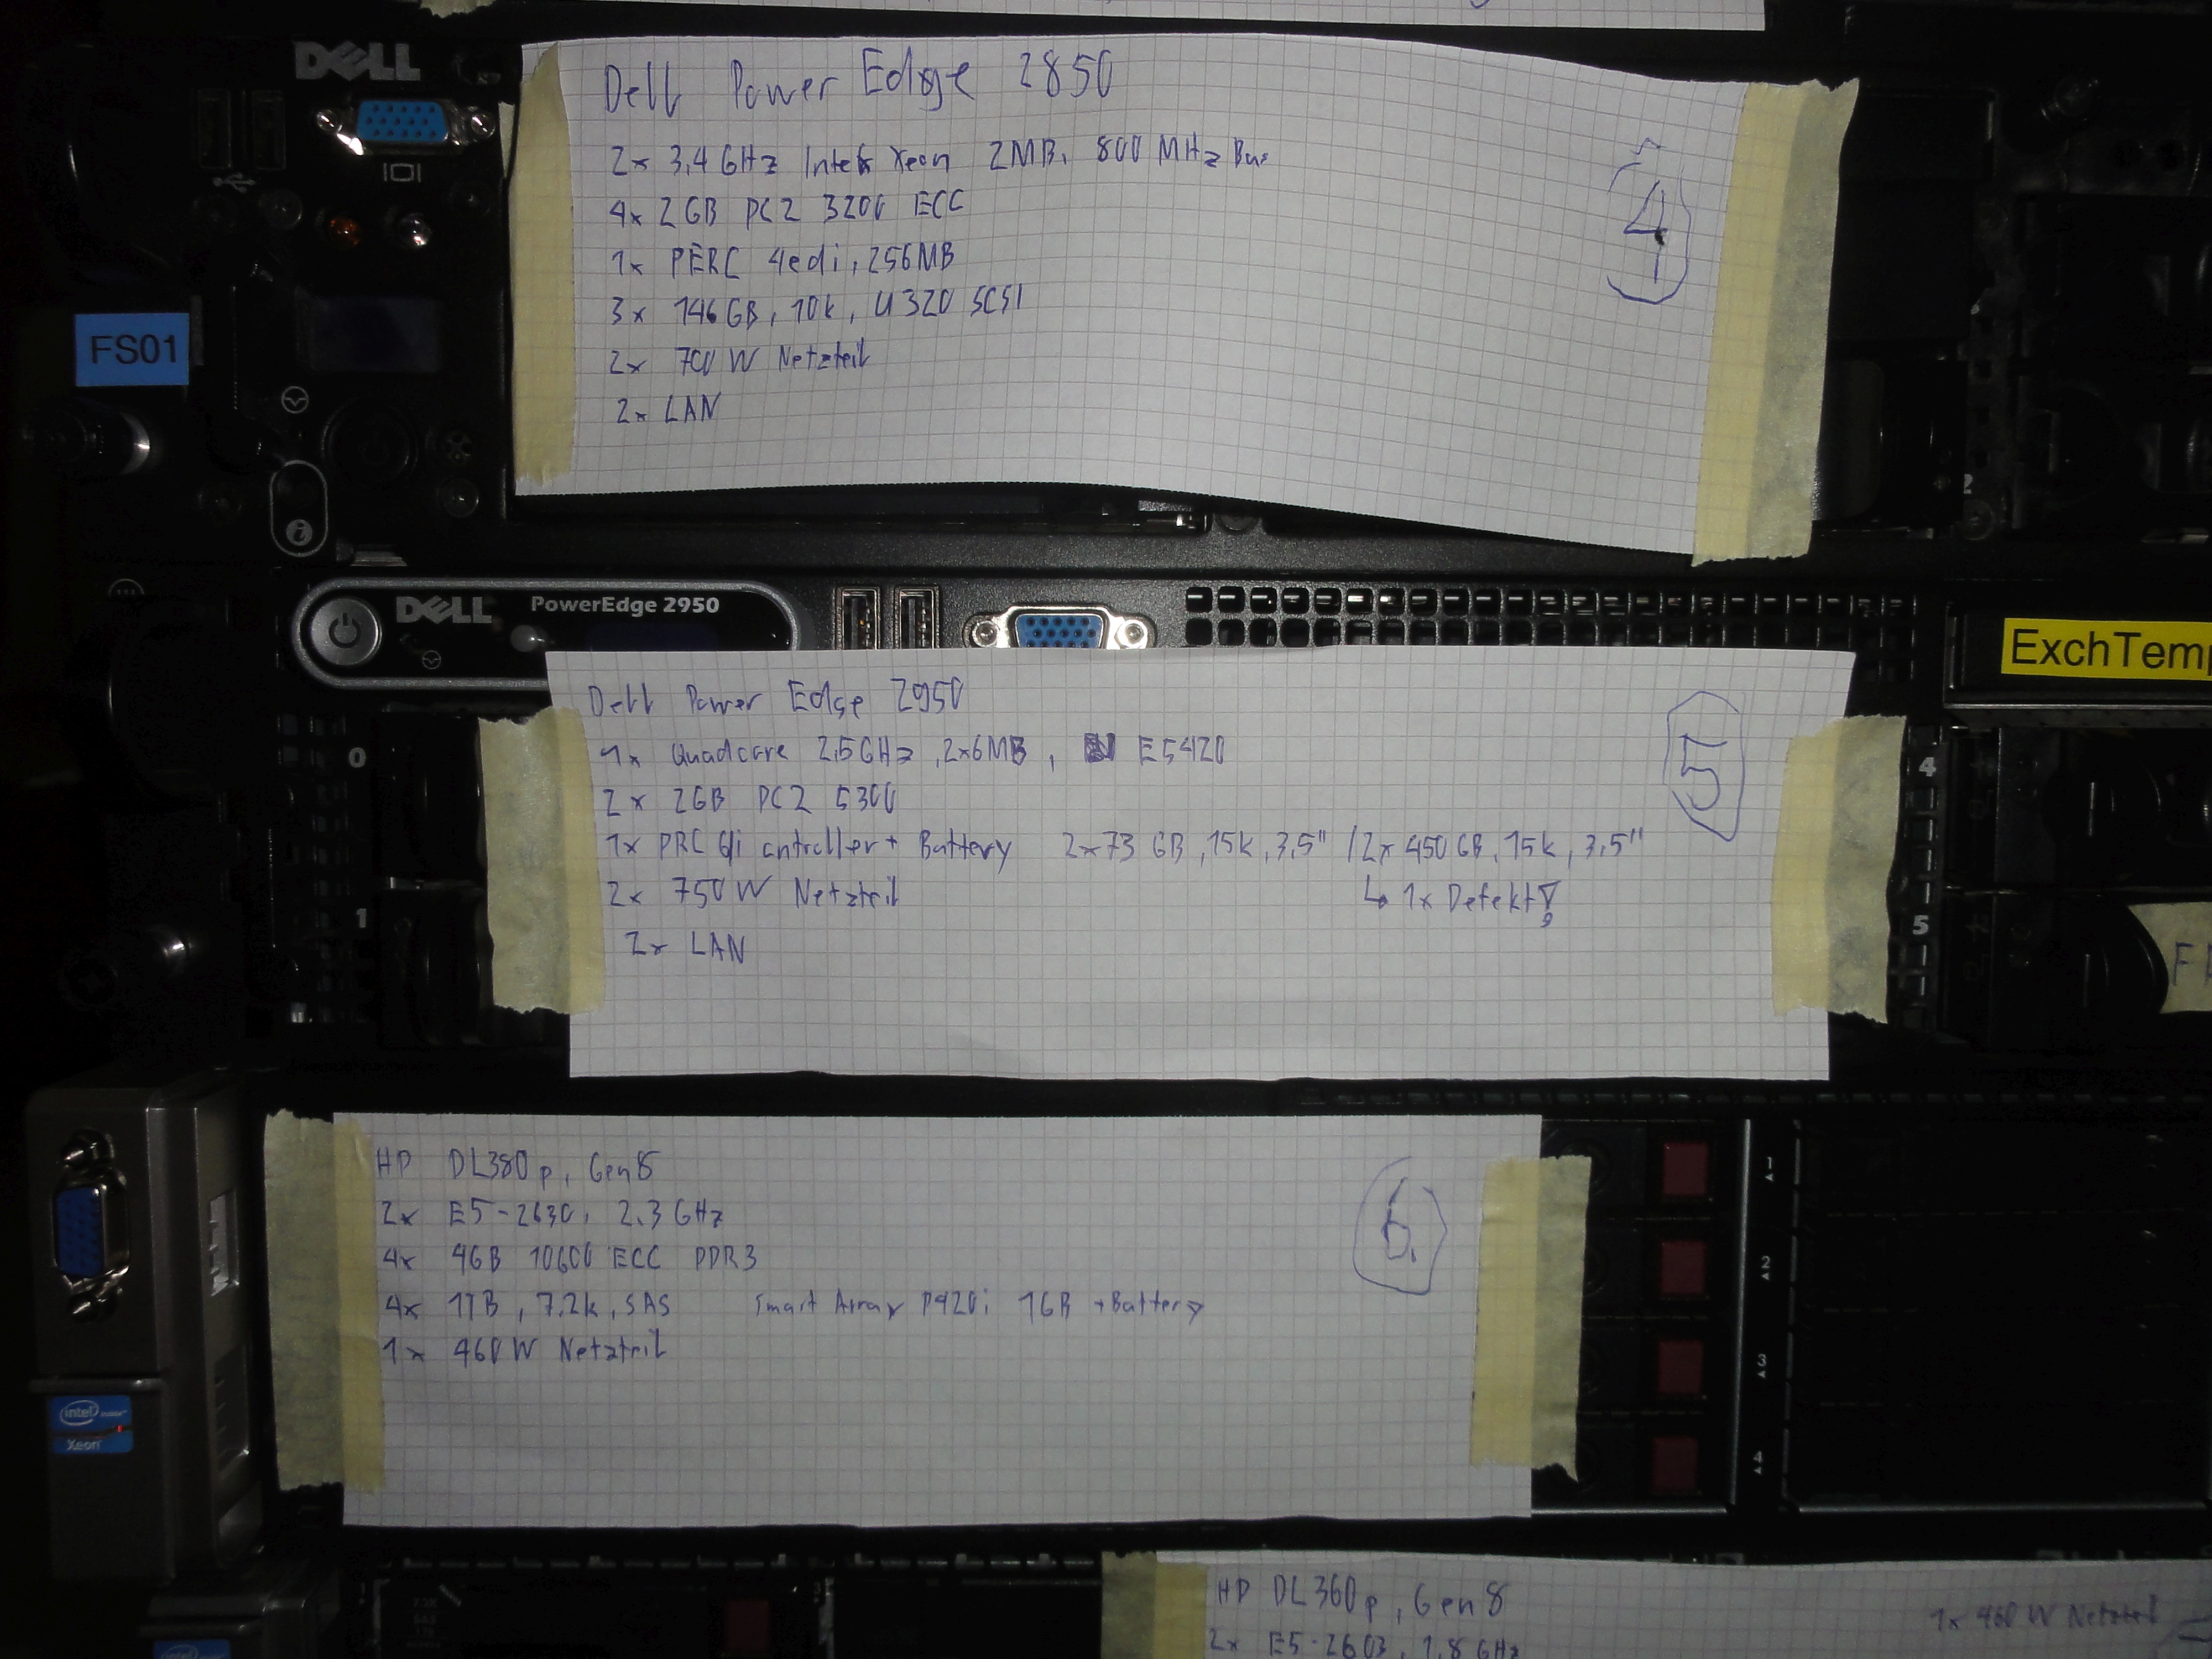 DELL
Dell Power Edge 2850
2x 3,4 GHz Intel Xeon 2MB, 800 MHz Bus
4x 2GB PC2 3200 ECC
1x PERC 4edi, 256MB
3x 146GB, 10k, U320 SCSI
2x 700W Netzteil
2x LAN
4
FS01
2
DELL PowerEdge 2950
ExchTemp
Dell Power Edge 2950
5
1x Quadcore 2,5GHz, 2x6MB, E5420
2x 2GB PC2 5300
1x PRC 6/i cntroller + Battery 2x73 GB, 15k, 3,5" / 2x 450GB, 15k, 3,5"
2x 750W Netzteil ↳ 1x Defekt!
2x LAN
0
1
4
5
HP DL380p, Gen8
2x E5-2630, 2.3GHz
4x 4GB 10600 ECC DDR3
4x 1TB, 7.2k, SAS Smart Array P420i 1GB +Battery
1x 460W Netzteil
6.
1
2
3
4
intel inside
Xeon
HP DL360p, Gen8
2x E5-2603, 1.8GHz
1x 460W Netzteil
intel